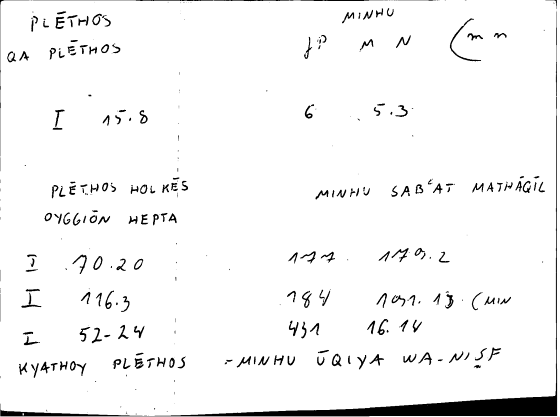 PLĒTHOS MINHU
QA PLĒTHOS JP M N (m n
I 15.8 6 5.3
PLĒTHOS HOLKĒS MINHU SABʿAT MATHĀQĪL
OYGGIŌN HEPTA
I 70.20 177 179.2
I 116.3 184 191. 13 (MIN
I 52-24 431 16.14
KYATHOY PLĒTHOS - MINHU ŪQIYA WA-NIṢF